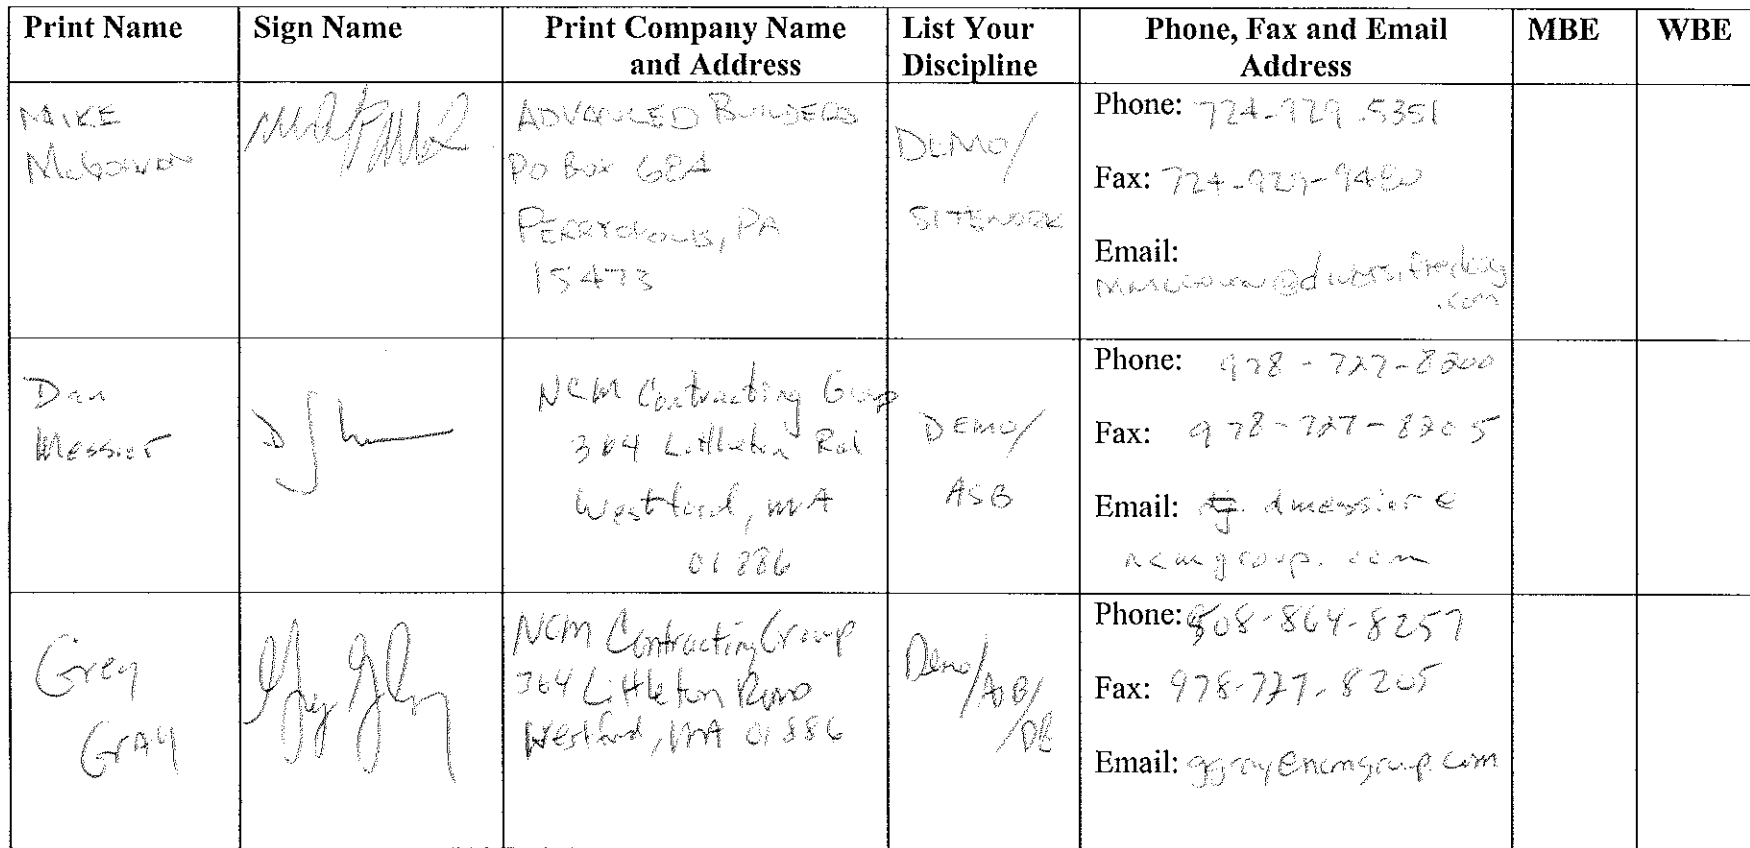 Print Name Sign Name Print Company Name and Address List Your Discipline Phone, Fax and Email Address MBE WBE
MIKE
McGowan
ADVANCED BUILDERS
PO Box 684
PERRYOPOLIS, PA
15473
DEMO/
SITEWORK
Phone: 724-929-5351
Fax: 724-929-9480
Email:
.com
Dan
Messier
NCM Contracting Group
364 Littleton Rd
Westford, MA
01886
DEMO/
ASB
Phone: 978-727-8200
Fax: 978-727-8205
Email: dmessier@
ncmgroup.com
Greg
Gray
NCM Contracting Group
364 Littleton Road
Westford, MA 01886
Demo/
ASB/
Phone: 508-864-8257
Fax: 978-727-8205
Email: ggray@ncmgroup.com